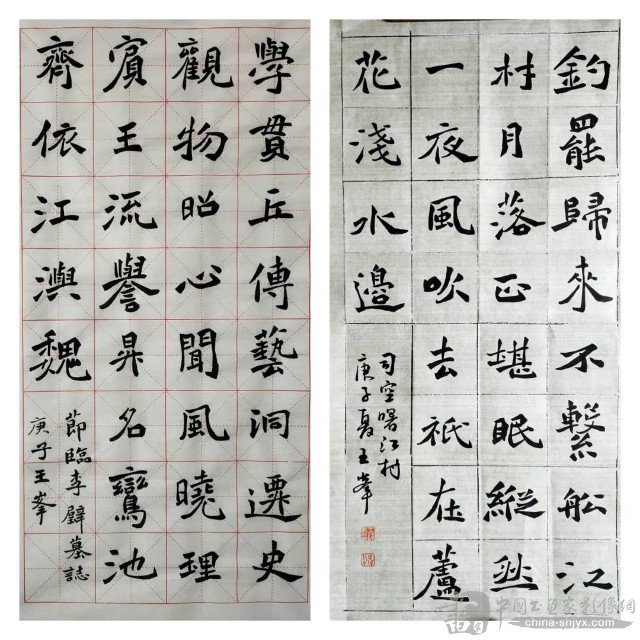 學貫丘傳藝洞遷史
觀物昭心聞風曉理
賓王流譽昇名鸞池
齊依江澳魏
節臨李璧墓誌
庚子王峯
釣罷歸來不繫船江
村月落正堪眠縱然
一夜風吹去祇在蘆
花淺水邊
司空曙江村
庚子夏王峯
中国书画家影像網
china-snjyx.com